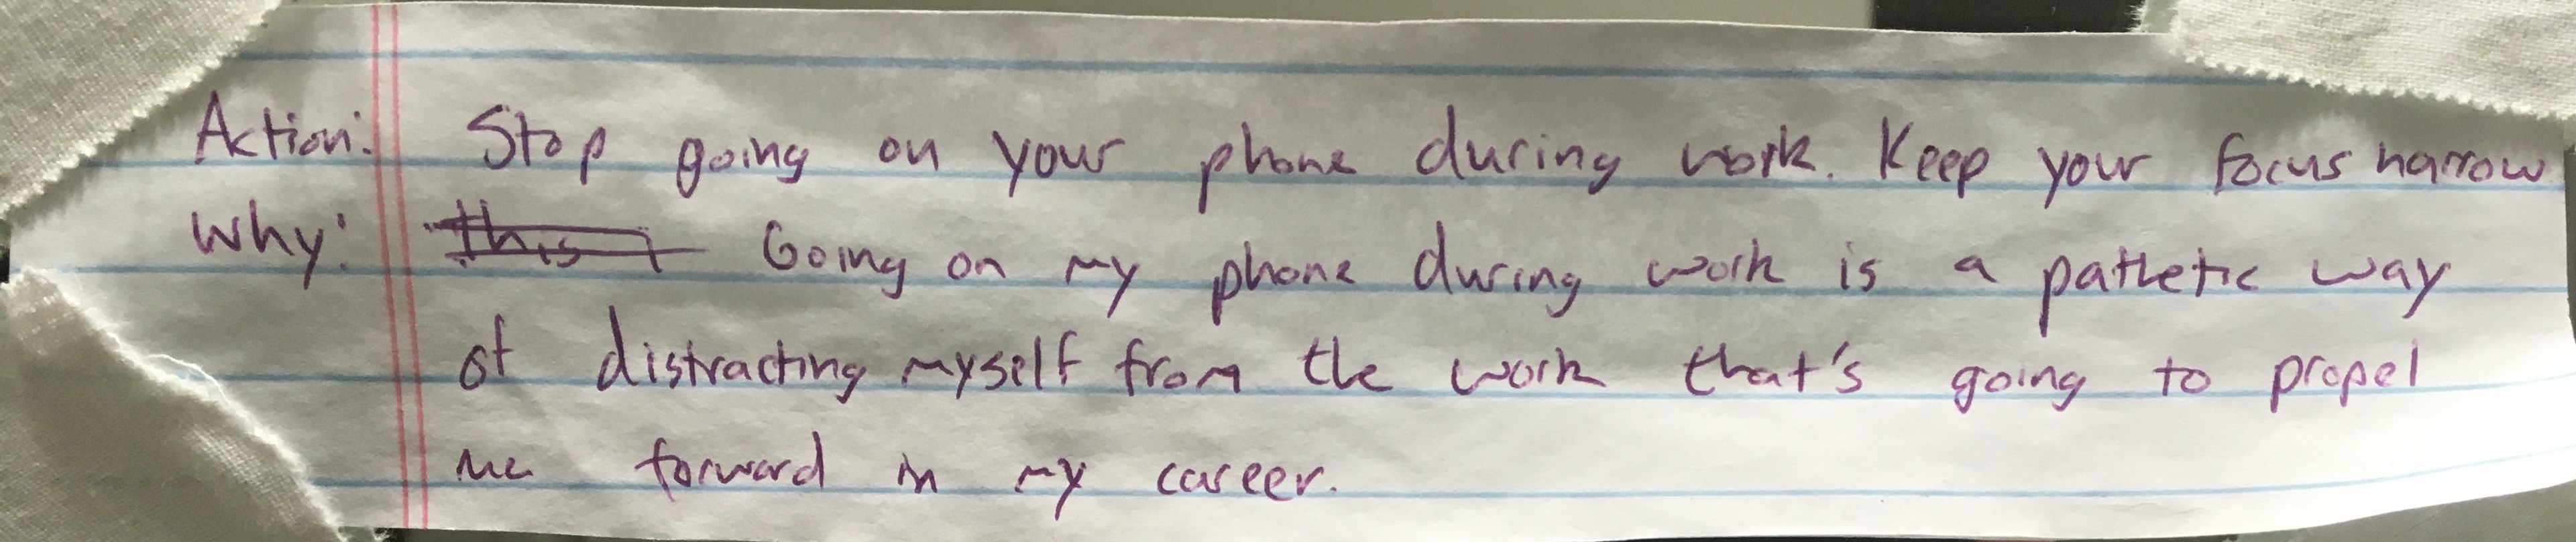 Action: Stop going on your phone during work. Keep your focus narrow
Why: this Going on my phone during work is a pathetic way
of distracting myself from the work that's going to propel
me forward in my career.